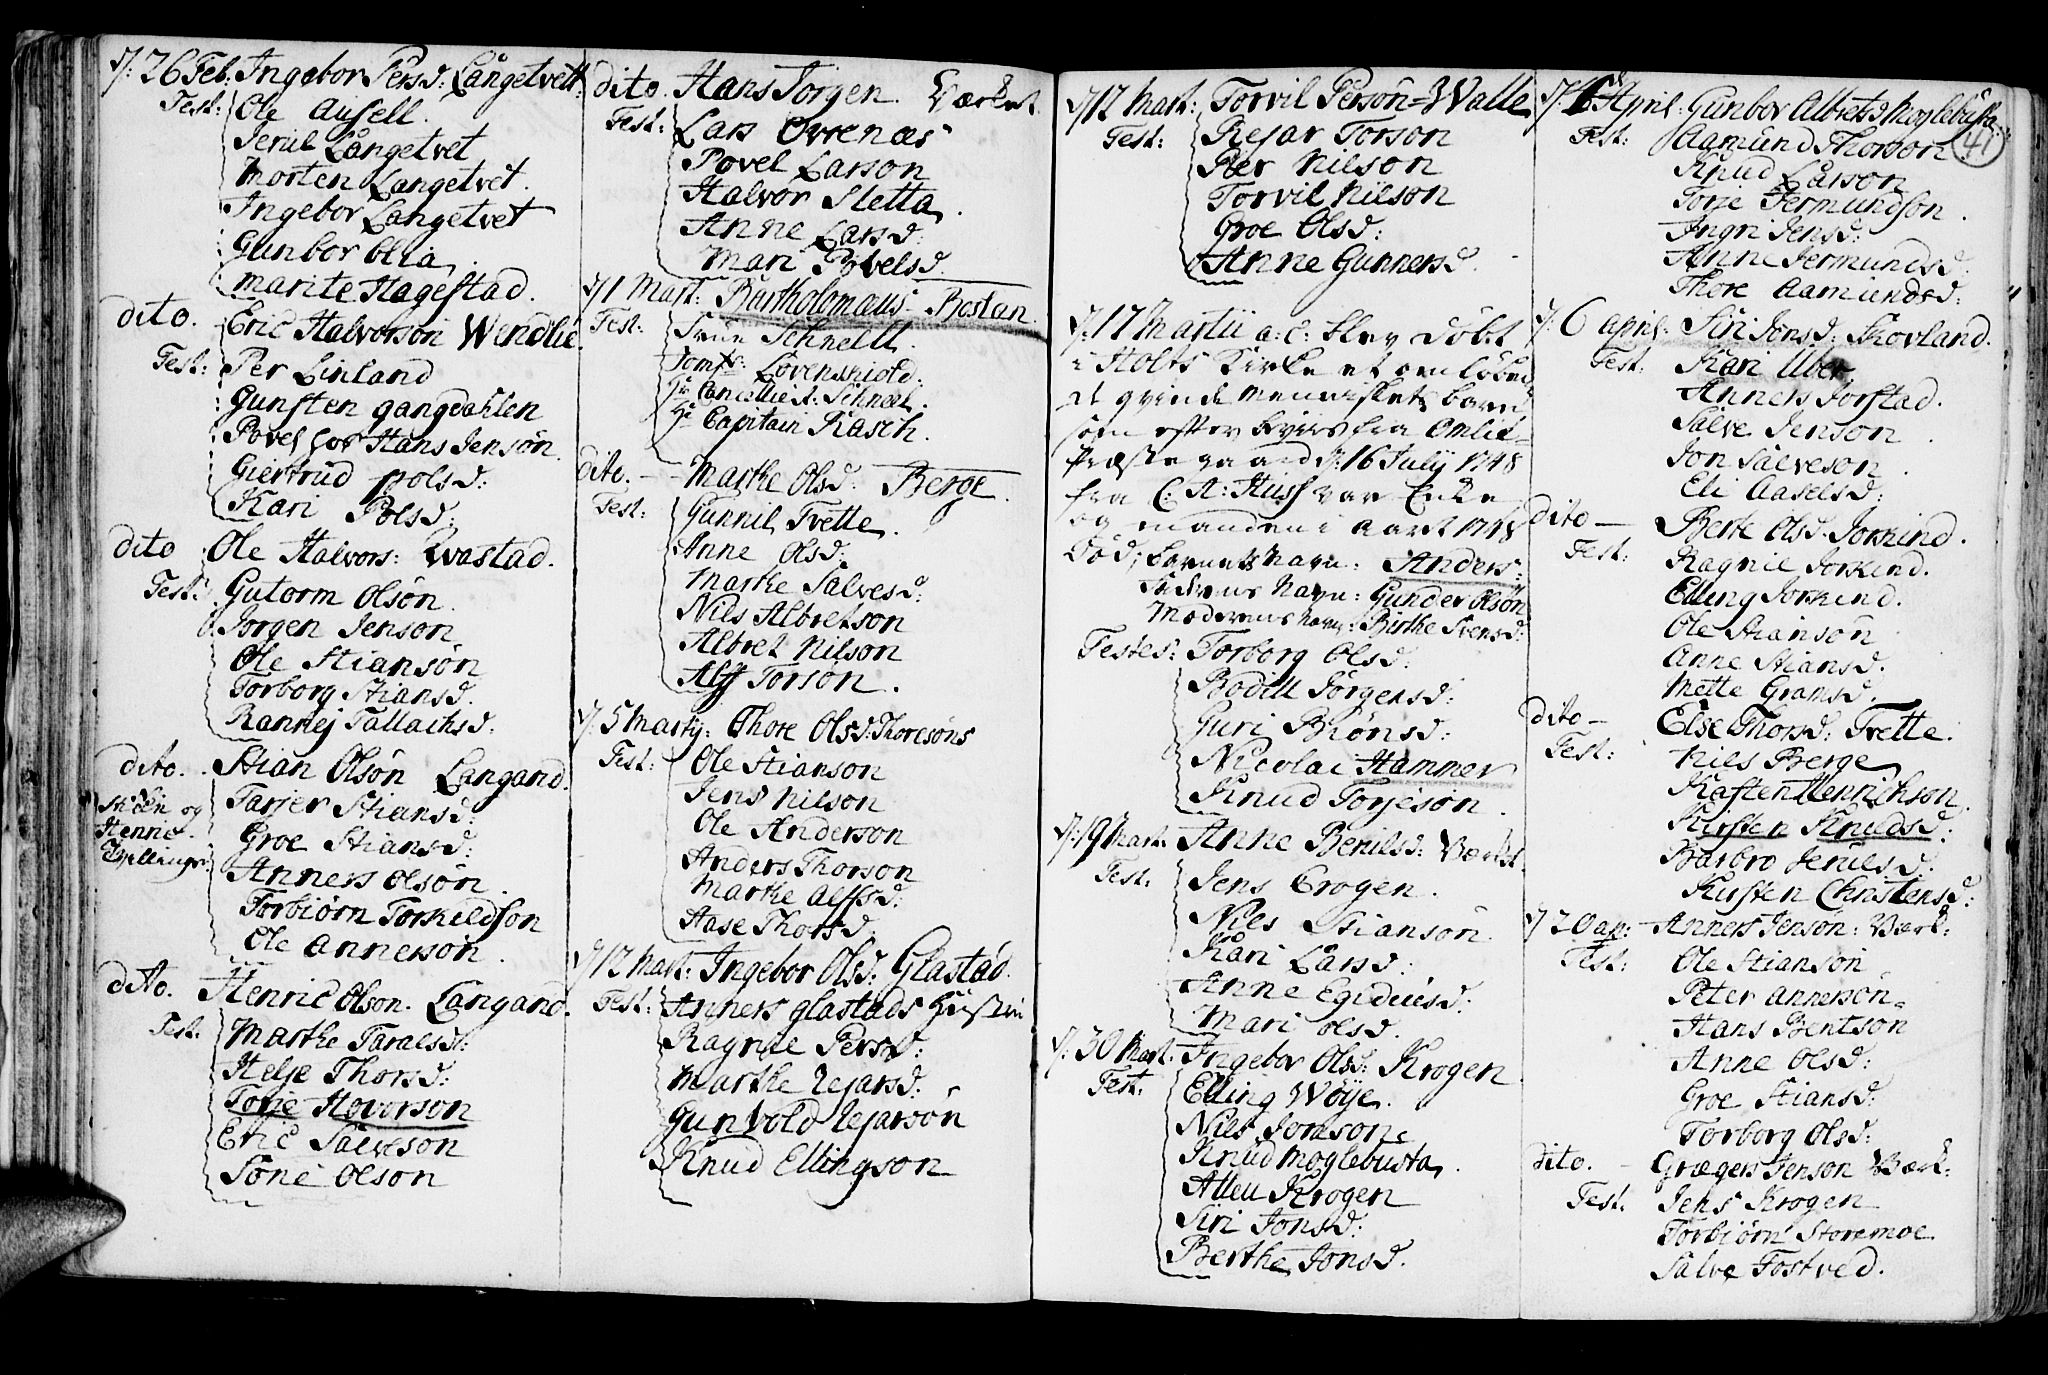 D: 26 Feb: Ingebor Persd: Långetvett
Test: Ole Ausell.
Jerul Långetvet
Morten Langetvet.
Ingebor Langetvet
Gunbor Olia.
Marite Hagestad.
dito. Eric Halvorsön Wendlie.
Test: Per Linland
Gunsten gangdahlen
Povel hos Hans Jensön.
Giertrud polsd:
Kari Polsd:
dito Ole Halvors: Lwastad.
Test: Gutorm Olsön.
Jorgen Jenson
Ole Stiansön
Torborg Stiansd.
Rannej Tallachsd.
dito. Stian Olsön Langand.
Stian og
Henric
Tvillinger
Tarjer Stiansd:
Groe Stiansd:
Anners Olsön.
Torbiörn Torkildson
Ole Annersön.
dito. Henric Olson. Langand.
Test: Marthe Taraldsd:
Helje Thorsd:
Torje Hovorson
Eric Salveson
Söne Olson
dito. Hans Jorgen. Værket.
Test: Lars Ovrenæs
Povel Larson
Halvor Sletta.
Anne Larsd:
Mari Povelsd.
D: 1 Mart: Bartholomæus Bostan.
Test: Frue Schnell.
Jomfr: Lövenskiold:
Hr Cancellie R: Schnell.
Hr Capitain Rasch.
dito. - Marthe Olsd: Berge.
Test: Gunnil Tvette.
Anne Olsd:
Marthe Salvesd:
Nils Albretson
Albret Nilson
Alf Torsön.
D: 5 Martij: Thore Olsd: Thoresöns
Test: Ole Stianson
Jens Nilson
Ole Anderson
Anders Thorson
Marthe Alfsd:
Aase Thorsd.
D: 12 Mart: Ingebor Olsd: Glastad.
Test: Anners glastads Hustru
Ragnile Persd:
Marthe Rejarsd:
Gunvold Rejarsön
Knud Ellingson
D: 12 Mart: Torvil Persön Walle
Test: Rejar Torson
Per Nilson
Torvil Nilson
Groe Olsd:
Anne Gunnersd.
D: 17 Martii a: c: blev döbt
i Holts Kirke et omlöben
de qvinde menniskes barn
som efter beviis fra Omlie
Præstegaard D: 16 July 1748
fra C: A: Huss var Enke
og manden i aaret 1748
död; barnets navn: Anders:
Faderens Navn: Gunder Olsön
Moderens navn: Birthe Svensd:
Testes: Torborg Olsd:
Bodill Jörgensd:
Guri Biönsd:
Nicolai Hammer
Knud Torjesön.
D: 19 Mart: Anne Berulsd: Værket.
Test: Jens Crogen.
Nils Stianson
Kari Larsd:
Anne Egidiusd:
Mari Olsd.
D: 30 Mart: Ingebor Olsd: Krogen
Test: Elling Wöije.
Nils Jonson
Knud Moglebusta.
Alleu Krogen
Siri Jonsd:
Berthe Jonsd.
D: 6 April: Gunbor Albretsd Moglebusta.
41
Test: Aamund Thorson.
Knud Larson
Torje Jermundson.
Ingri Jensd:
Anne Jermundsd:
Thore Aamundsd:
D: 6 april: Siri Jonsd: Skovland.
Test: Kari Uber
Anners Jorstad.
Salve Jenson
Jon Salveson.
Eli Aaselsd:
dito - Berte Olsd. Jorkind.
Test: Ragnil Jorkind.
Elling Jorkind.
Ole Stiansön
Anne Stiansd.
Mette Gramsd.
dito - Else Thorsd: Tvette.
Test: Niels Berge
Kasten Henrichson.
Kirsten Knudsd:
Barbro Jerulsd.
Kirsten Christensd:
D: 20 ap: Anners Jenson: Værk:
Test: Ole Stianson
Peter Annerson
Hans Bentson
Anne Olsd:
Groe Stiansd:
Torborg Olsd:
dito. - Grægers Jenson Værk:
Test: Jens Krogen
Torbiörn Storemoe
Salve Fostved.